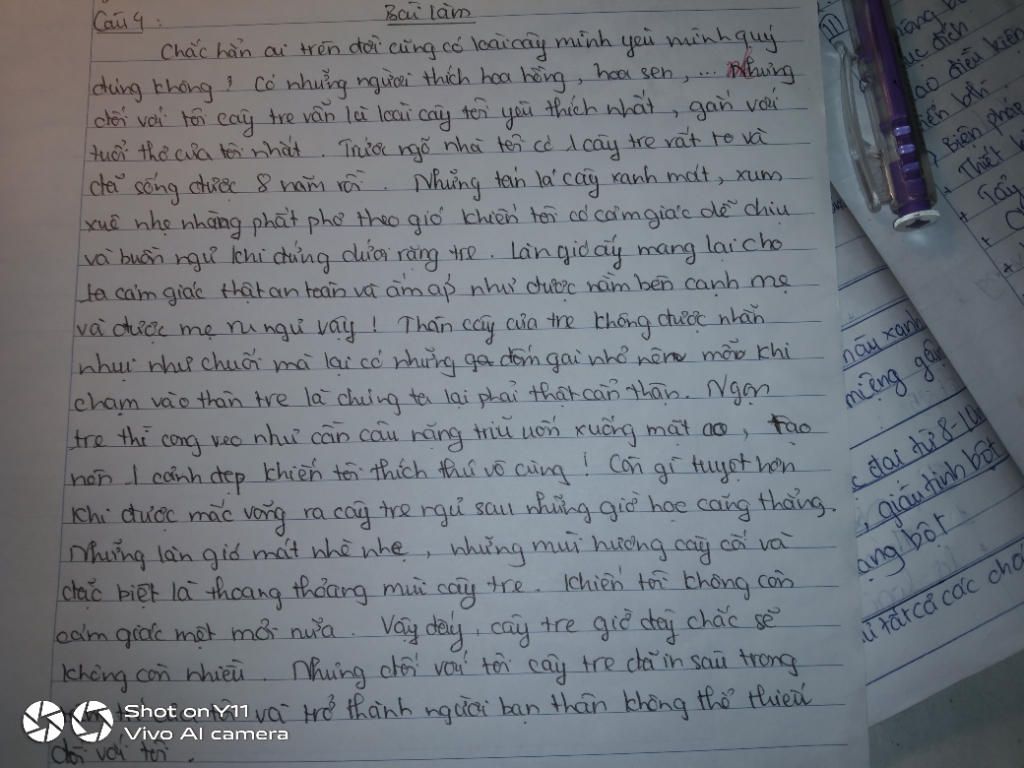 Câu 4:
Bài làm
Chắc hẳn ai trên đời cũng có loài cây mình yêu mình quý
đúng không? Có những người thích hoa hồng, hoa sen, ... Nhưng
đối với tôi cây tre vẫn là loài cây tôi yêu thích nhất, gắn với
tuổi thơ của tôi nhất. Trước ngõ nhà tôi có 1 cây tre rất to và
đã sống được 8 năm rồi. Những tán lá cây xanh mát, xum
xuê nhẹ nhàng phất phơ theo gió khiến tôi có cảm giác dễ chịu
và buồn ngủ khi đứng dưới rặng tre. Làn gió ấy mang lại cho
ta cảm giác thật an toàn và ấm áp như được nằm bên cạnh mẹ
và được mẹ ru ngủ vậy! Thân cây của tre không được nhẵn
nhụi như chuối mà lại có những đốm gai nhỏ nên mỗi khi
chạm vào thân tre là chúng ta lại phải thật cẩn thận. Ngọn
tre thì cong veo như cần câu rặng trĩu uốn xuống mặt ao, tạo
nên 1 cảnh đẹp khiến tôi thích thú vô cùng! Còn gì tuyệt hơn
khi được mắc võng ra cây tre ngủ sau những giờ học căng thẳng.
Những làn gió mát nhè nhẹ, những mùi hương cây cỏ và
đặc biệt là thoang thoảng mùi cây tre. Khiến tôi không còn
cảm giác mệt mỏi nữa. Vậy đấy, cây tre giờ đây chắc sẽ
không còn nhiều. Nhưng đối với tôi cây tre đã in sâu trong
và trở thành người bạn thân không thể thiếu
đối với tôi.
Shot on Y11
Vivo AI camera
Biện pháp
Thiết
Tẩy
nâu xanh
miệng
đai từ 8-10
giấu tinh bột
ạng bột
tất cả các